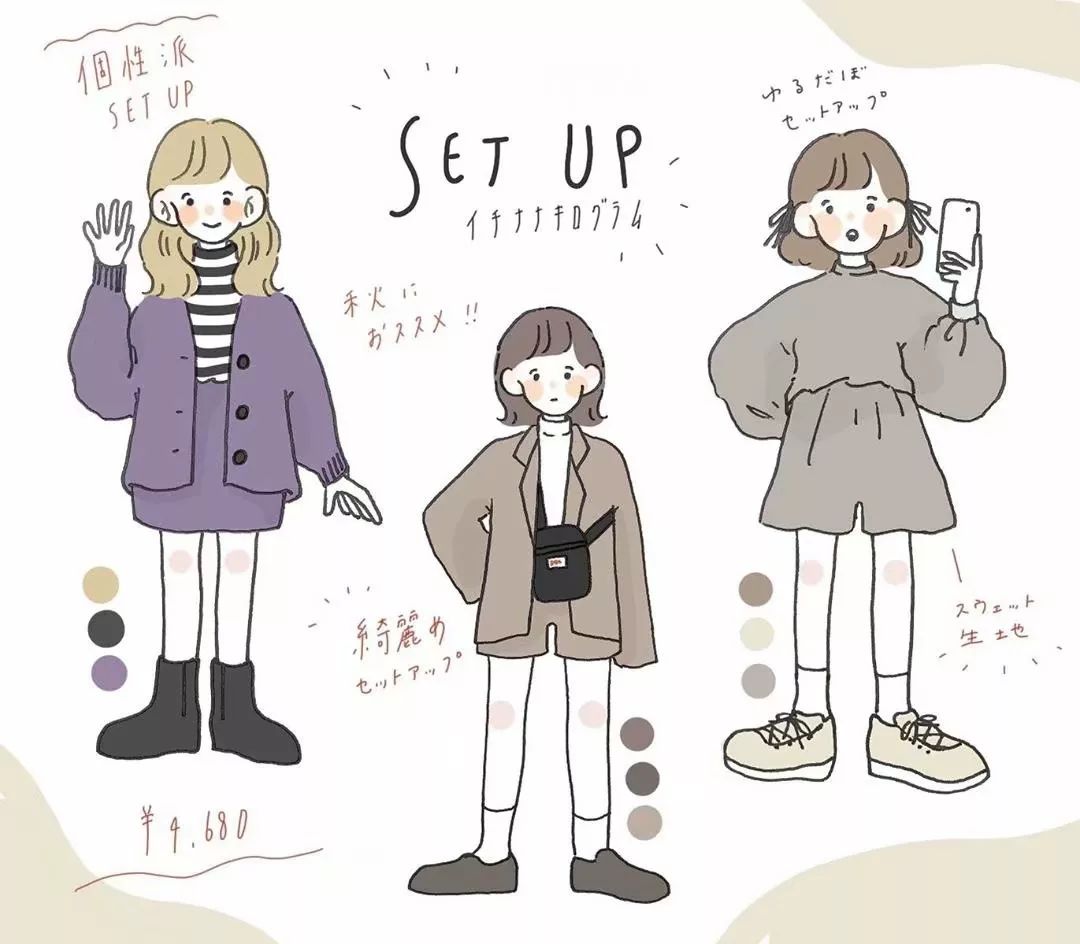 個性派
SET UP
SET UP
イチナナキログラム
ゆるだぼ
セットアップ
秋に
おススメ!!
綺麗め
セットアップ
スウェット
生地
¥4,680